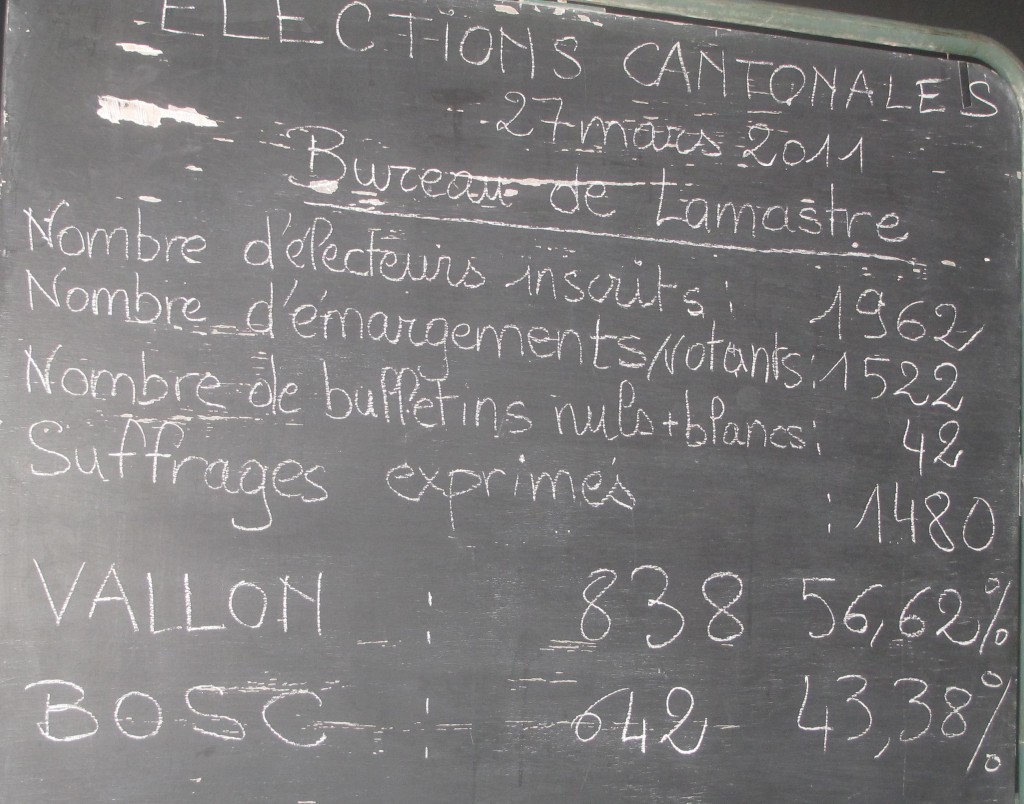 ELECTIONS CANTONALES
27 mars 2011
Bureau de Lamastre
Nombre d'électeurs inscrits : 1962
Nombre d'émargements/votants : 1522
Nombre de bulletins nuls + blancs : 42
Suffrages exprimés : 1480
VALLON : 838 56,62%
BOSC : 642 43,38%